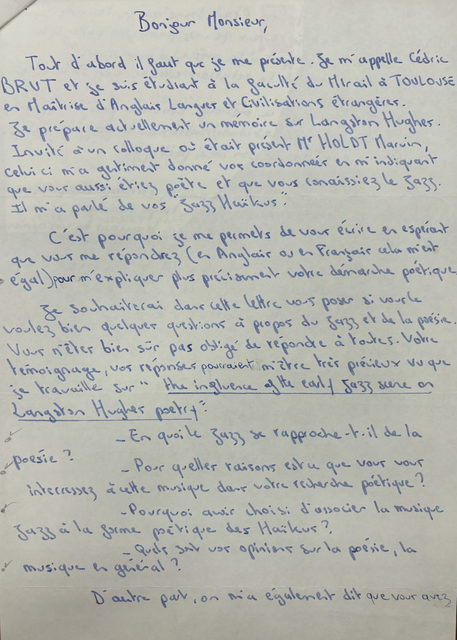 Bonjour Monsieur,
Tout d'abord il faut que je me présente. Je m'appelle Cédric
BRUT et je suis étudiant à la faculté du Mirail à TOULOUSE
en Maîtrise d'Anglais Langues et Civilisations étrangères.
Je prépare actuellement un mémoire sur Langston Hughes.
Invité à un colloque où était présent Mr HOLDT Marvin,
celui ci m'a gentiment donné vos coordonnées en m'indiquant
que vous aussi étiez poète et que vous connaissiez le Jazz.
Il m'a parlé de vos "Jazz Haïkus".
C'est pourquoi je me permets de vous écrire en espérant
que vous me répondrez (en Anglais ou en Français cela m'est
égal) pour m'expliquer plus précisément votre démarche poétique
Je souhaiterai dans cette lettre vous poser si vous le
voulez bien quelques questions à propos du Jazz et de la poésie.
Vous n'êtes bien sûr pas obligé de répondre à toutes. Votre
témoignage, vos réponses pourraient m'être très précieux vu que
je travaille sur "the influence of the early Jazz scene on
Langston Hughes poetry":
- En quoi le Jazz se rapproche-t-il de la
poésie ?
- Pour quelles raisons est ce que vous vous
interressez à cette musique dans votre recherche poétique ?
- Pourquoi avoir choisi d'associer la musique
Jazz à la forme poétique des Haïkus ?
- Quels sont vos opinions sur la poésie, la
musique en général ?
D'autre part, on m'a également dit que vous avez